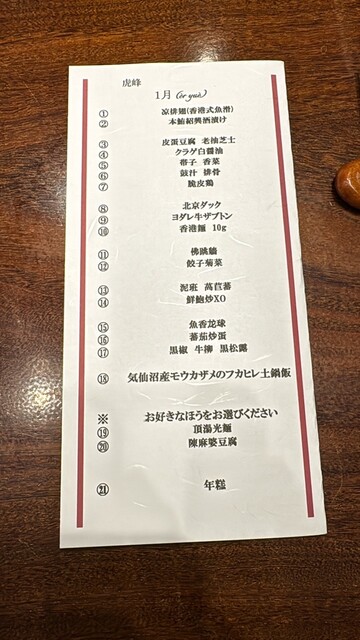 虎峰
1月 (er yuè)
① 凉排翅(香港式魚滑)
② 本鮪紹興酒漬け
③ 皮蛋豆腐 老抽芝士
④ クラゲ白醤油
⑤ 帯子 香菜
⑥ 豉汁 排骨
⑦ 脆皮鶏
⑧ 北京ダック
⑨ ヨダレ牛ザブトン
⑩ 香港麺 10g
⑪ 佛跳牆
⑫ 餃子菊菜
⑬ 泥班 萬苣蕃
⑭ 鮮鮑炒XO
⑮ 魚香茄球
⑯ 蕃茄炒蛋
⑰ 黒椒 牛柳 黒松露
⑱ 気仙沼産モウカザメのフカヒレ土鍋飯
※ お好きなほうをお選びください
⑲ 頂湯光麺
⑳ 陳麻婆豆腐
㉑ 年糕